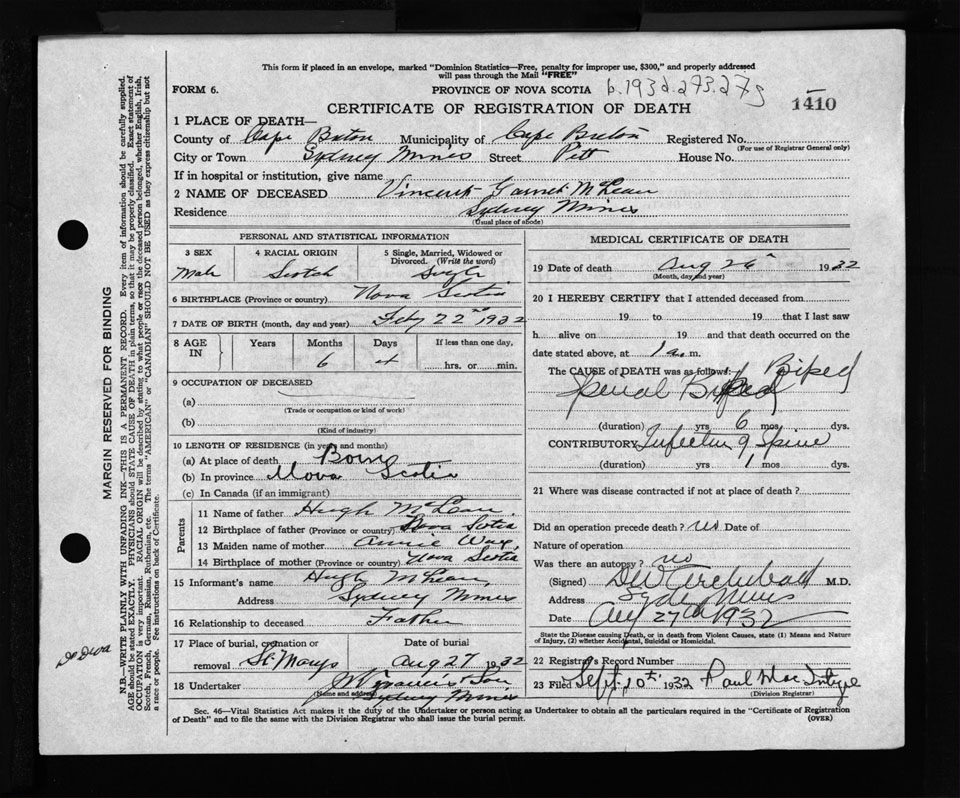 This form if placed in an envelope, marked "Dominion Statistics—Free, penalty for improper use, $300," and properly addressed
will pass through the Mail "FREE"
FORM 6.
PROVINCE OF NOVA SCOTIA
b.1932.273.275
1410
CERTIFICATE OF REGISTRATION OF DEATH
1 PLACE OF DEATH—
County of Cape Breton Municipality of Cape Breton Registered No.
(For use of Registrar General only)
City or Town Sydney Mines Street Pitt House No.
If in hospital or institution, give name
2 NAME OF DECEASED Vincent Garnet McLean
Residence Sydney Mines
(Usual place of abode)
PERSONAL AND STATISTICAL INFORMATION
3 SEX Male
4 RACIAL ORIGIN Scotch
5 Single, Married, Widowed or Divorced. (Write the word) Single
6 BIRTHPLACE (Province or country) Nova Scotia
7 DATE OF BIRTH (month, day and year) Feby 22nd 1932
8 AGE IN
Years Months Days If less than one day,
6 4 hrs. or min.
9 OCCUPATION OF DECEASED
(a)
(Trade or occupation or kind of work)
(b)
(Kind of industry)
10 LENGTH OF RESIDENCE (in years and months)
(a) At place of death Born
(b) In province Nova Scotia
(c) In Canada (if an immigrant)
Parents
11 Name of father Hugh McLean
12 Birthplace of father (Province or country) Nova Scotia
13 Maiden name of mother Annie
14 Birthplace of mother (Province or country) Nova Scotia
15 Informant's name Hugh McLean
Address Sydney Mines
16 Relationship to deceased Father
17 Place of burial, cremation or removal St. Marys
Date of burial Aug 27 1932
18 Undertaker & Son
(Name and address) Sydney Mines
MEDICAL CERTIFICATE OF DEATH
19 Date of death Aug 26th 1932
(Month, day and year)
20 I HEREBY CERTIFY that I attended deceased from
19 to 19 that I last saw
h alive on 19 and that death occurred on
date stated above, at 1 a.m.
The CAUSE of DEATH was as follows: Biped
Spinal Biped
(duration) yrs 6 mos dys.
CONTRIBUTORY Infection of Spine
(duration) yrs 1 mos dys.
21 Where was disease contracted if not at place of death?
Did an operation precede death? no Date of
Nature of operation
Was there an autopsy? no
(Signed) Archibald M.D.
Address Syd. Mines
Date Aug 27th 1932
State the Disease causing Death, or in death from Violent Causes, state (1) Means and Nature
of Injury, (2) whether Accidental, Suicidal or Homicidal.
22 Registrar's Record Number
23 Filed Sept. 10th 1932 Paul MacIntyre
(Division Registrar)
Sec. 46—Vital Statistics Act makes it the duty of the Undertaker or person acting as Undertaker to obtain all the particulars required in the "Certificate of Registration
of Death" and to file the same with the Division Registrar who shall issue the burial permit.
(OVER)
MARGIN RESERVED FOR BINDING
N.B.—WRITE PLAINLY WITH UNFADING INK—THIS IS A PERMANENT RECORD. Every item of information should be carefully supplied.
AGE should be stated EXACTLY. PHYSICIANS should STATE CAUSE OF DEATH in plain terms, so that it may be properly classified. Exact statement of
OCCUPATION is very important. RACIAL ORIGIN will be described by stating to what people or race the deceased person belonged, whether English, Irish,
Scotch, French, German, Russian, Ruthenian, etc. The terms "AMERICAN" or "CANADIAN" SHOULD NOT BE USED as they express citizenship but not
a race or people. See instructions on back of Certificate.